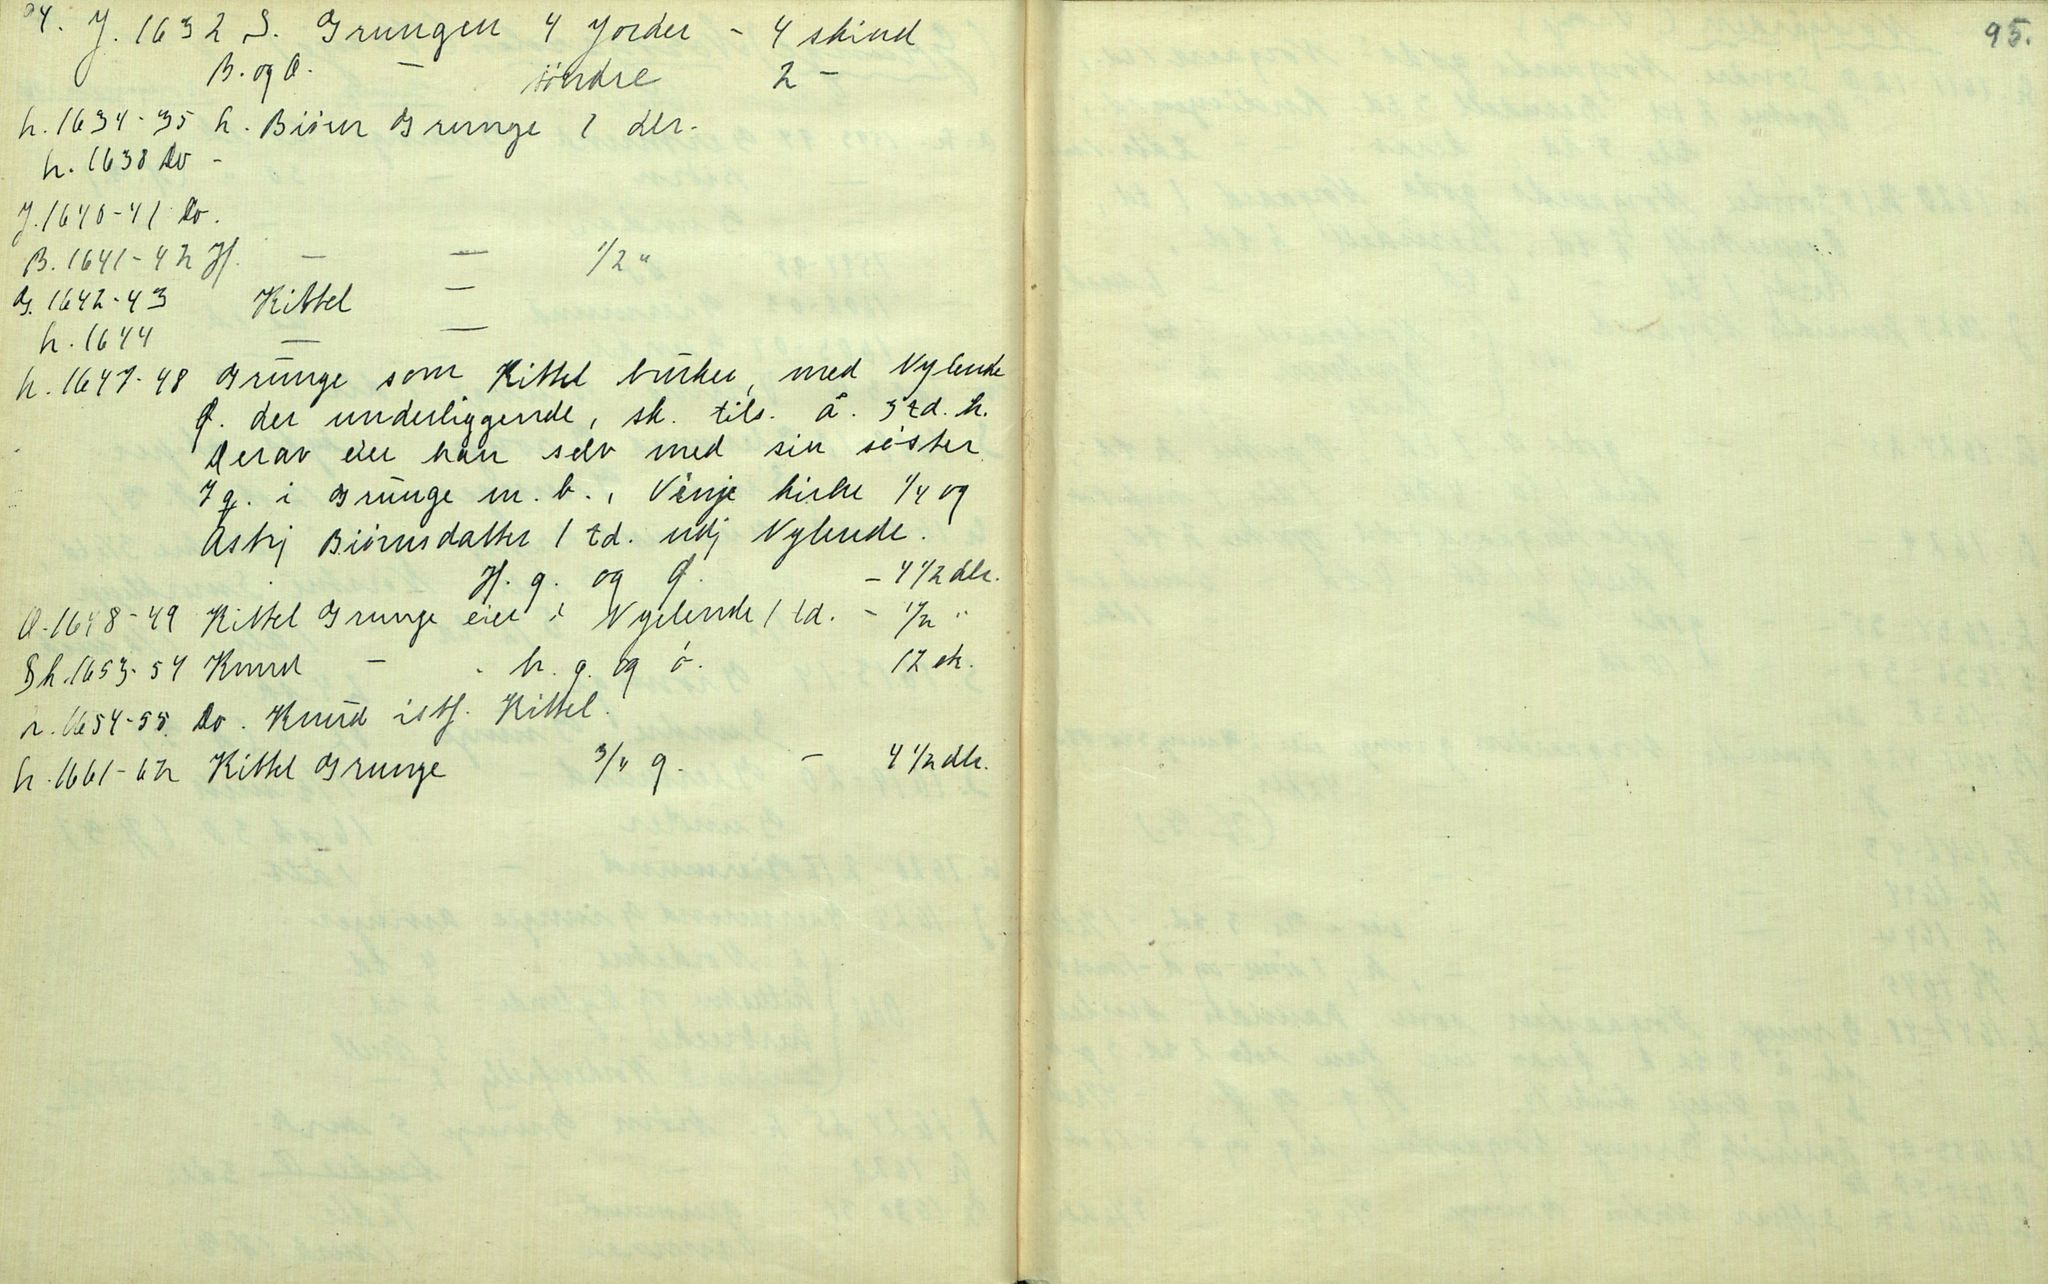 94. J. 1632 S. Grungen 4 Jorder - 4 skind
B. og Ø. — søndre 2 -
h. 1634-35 h. Biörn Grunge 1 dlr.
h. 1638 Do -
J. 1640-41 Do.
B. 1641-42 Hf. — — 1/2 "
G. 1642-43 Kittel —
h. 1644 — —
h. 1647-48 Grunge som Kittel bruker, med Nylende
Ø. der underliggende, sk. tils. å. 3 td. h.
Derav eier han selv med sin söster
7 q. i Grunge m. b., Vinje kirke 1/4 og
Astrj Biörnsdatter 1 td. udj Nylende.
Hf. g. og Ø. - 4 1/2 dlr.
O. 1648-49 Kittel Grunge eier i Nyelende 1 td. - 1/2 "
Sk. 1653-54 Knud — - h. g. og ö. 12 ort.
r. 1654-55 Do. Knud istf. Kittel.
h. 1661-62 Kittel Grunge 3/4 g. — 4 1/2 dlr.
95.